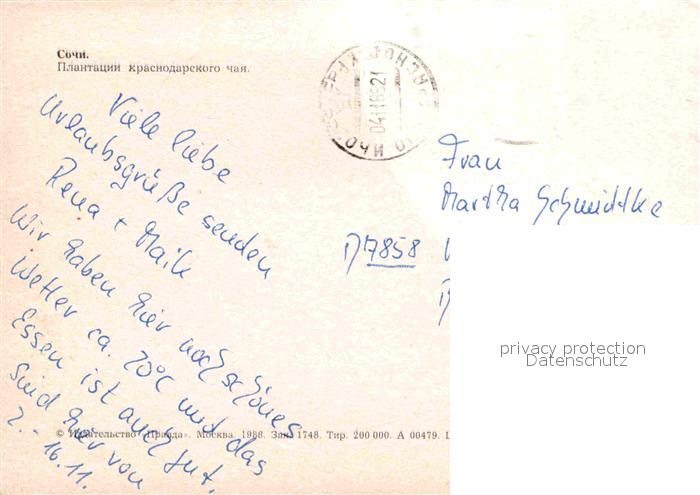 Сочи.
Плантации краснодарского чая.
Viele liebe
Urlaubsgrüße senden
Rena + Maik
Wir haben hier noch schönes
Wetter ca. 20°C und das
Essen ist auch gut.
Sind hier von
2. - 16.11.
Frau
Martha Schmidtke
7858
© Издательство «Правда». Москва. 1988. Зак. 1748. Тир. 200 000. А 00479.
privacy protection
Datenschutz